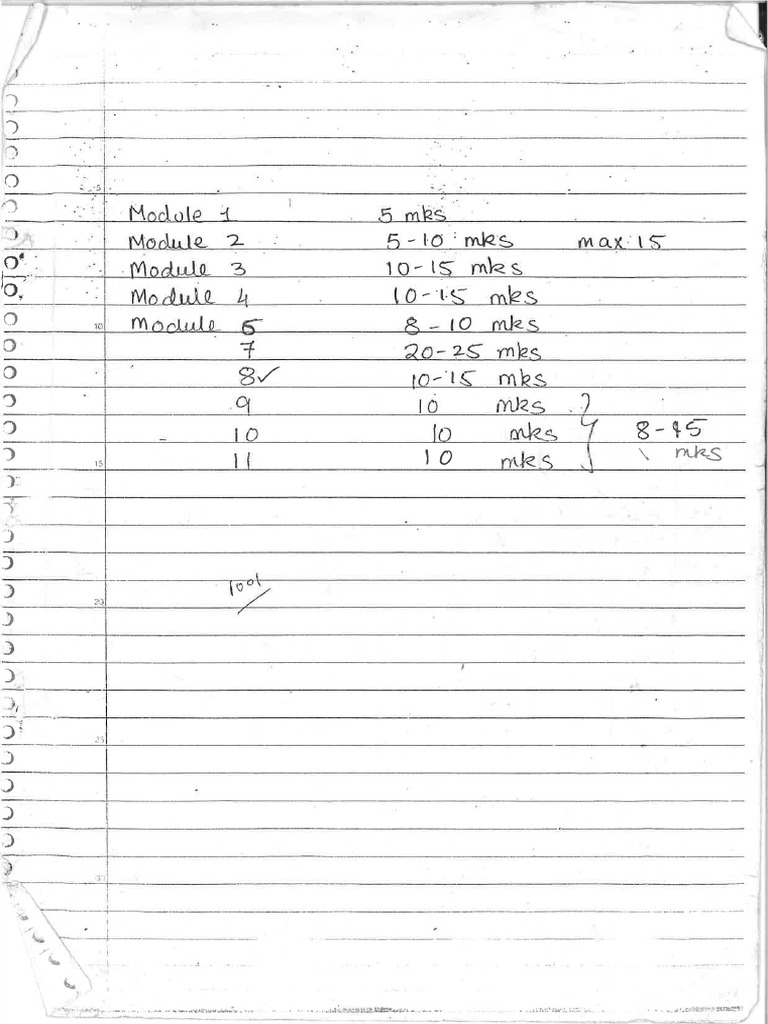 Module 1 5 mks
Module 2 5-10 mks max 15
Module 3 10-15 mks
Module 4 10-15 mks
Module 5 8-10 mks
7 20-25 mks
8✓ 10-15 mks
9 10 mks
10 10 mks } 8-15
11 10 mks mks
1001
5
10
15
20
25
30